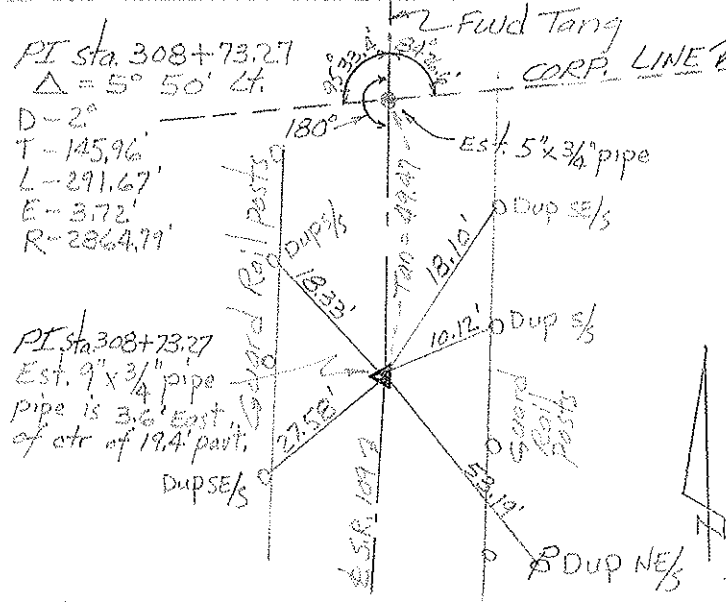 Fwd Tang
PI sta. 308+73.27
Δ = 5° 50' Lt.
D - 2°
T - 145.96'
L - 291.67'
E - 3.72'
R - 2864.79'
95° 33.4'
CORP. LINE
180°
Est. 5" x 3/4" pipe
Tan = 49.47
Guard Rail Posts
Dup S/s
18.33'
18.10'
Dup SE/s
10.12'
Dup S/s
PI sta 308+73.27
Est. 9" x 3/4" pipe
pipe is 3.6' East
of ctr of 19.4' pavt.
27.58'
Dup SE/s
Guard
Rail
Posts
53.19'
Dup NE/s
S.R. 109
N